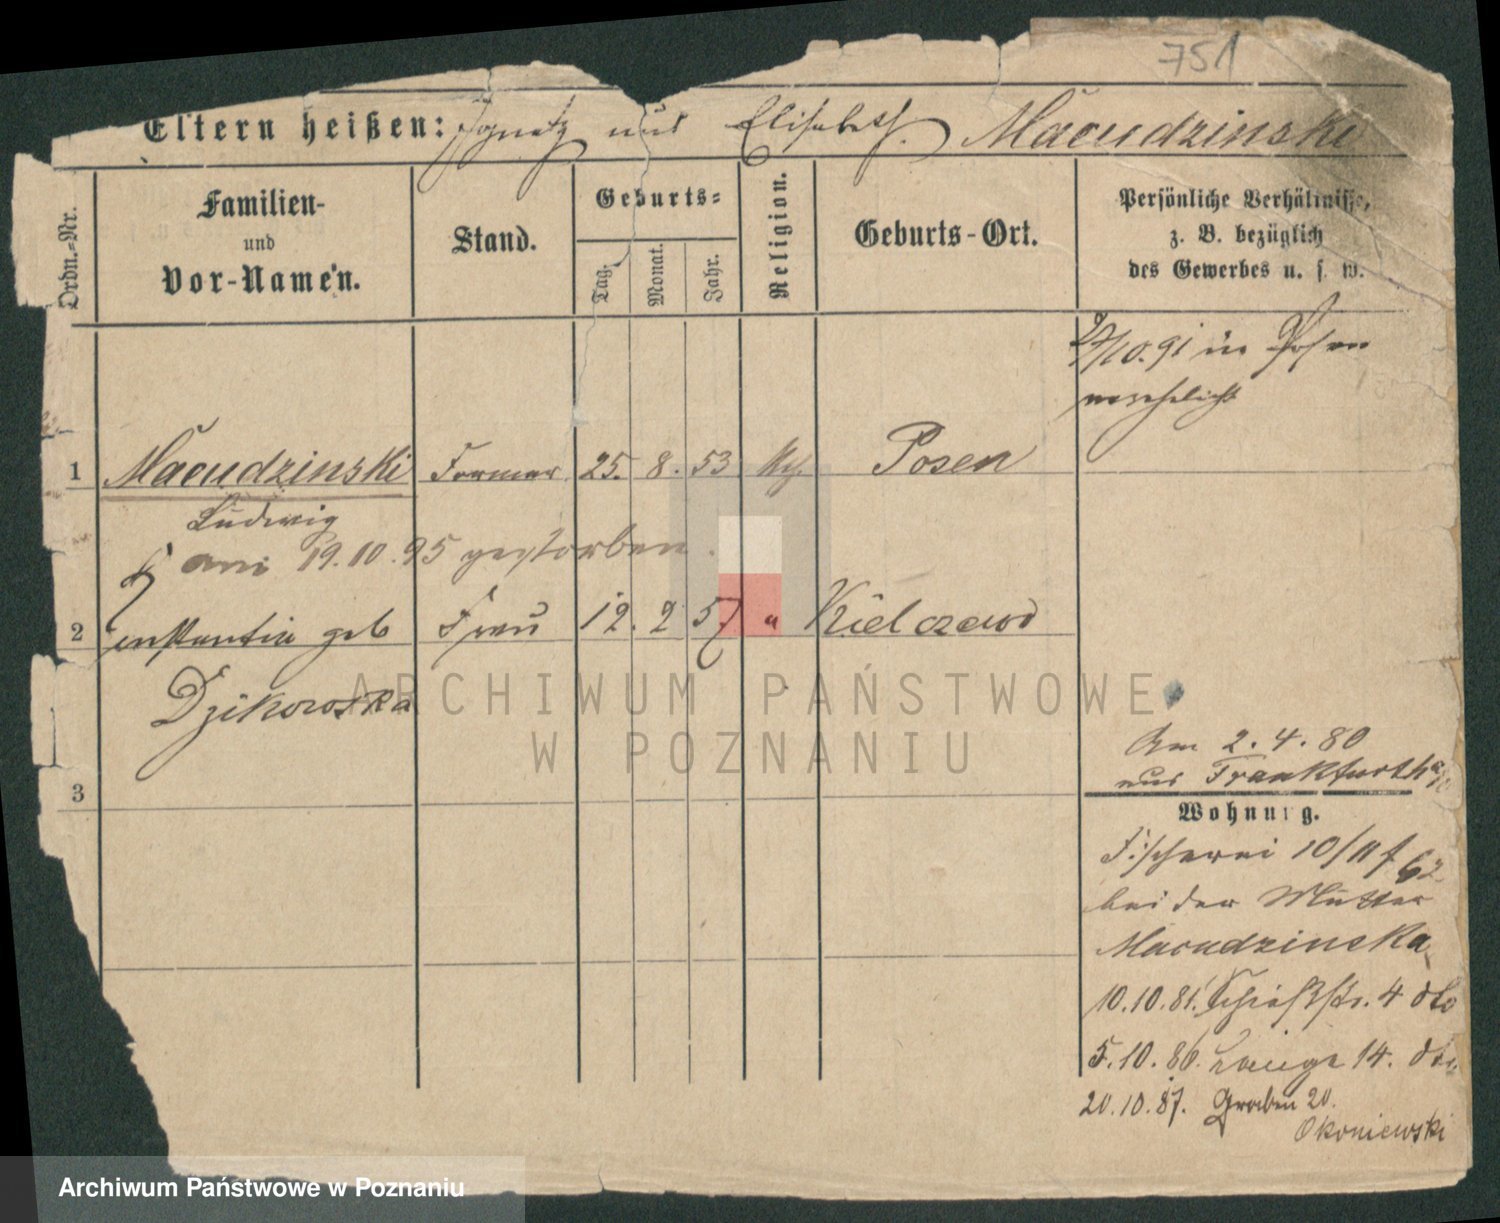 751
Eltern heißen: Ignatz und Elisabeth. Macudzinski
Ordn.-Nr.
Familien-
und
Vor-Namen.
Stand.
Geburts-
Tag.
Monat.
Jahr.
Religion.
Geburts-Ort.
Persönliche Verhältnisse,
z. B. bezüglich
des Gewerbes u. s. w.
/10.91 in Posen
verehelicht
1 Macudzinski Former 25. 8. 53 kth. Posen
Ludwig
am 19.10.95 gestorben.
2 Frau 12. 2 57 " Kielczewo
geb
Dzikowska
3
Am 2.4.80
aus Frankfurth a/O
Wohnung.
Fischerei 10/11 f 62
bei der Mutter
Macudzinska
10.10.81. Schießstr. 4 dto
5.10.86. Lange 14. dto.
20.10.87. Graben 20.
Okoniewski
ARCHIWUM PAŃSTWOWE
W POZNANIU
Archiwum Państwowe w Poznaniu